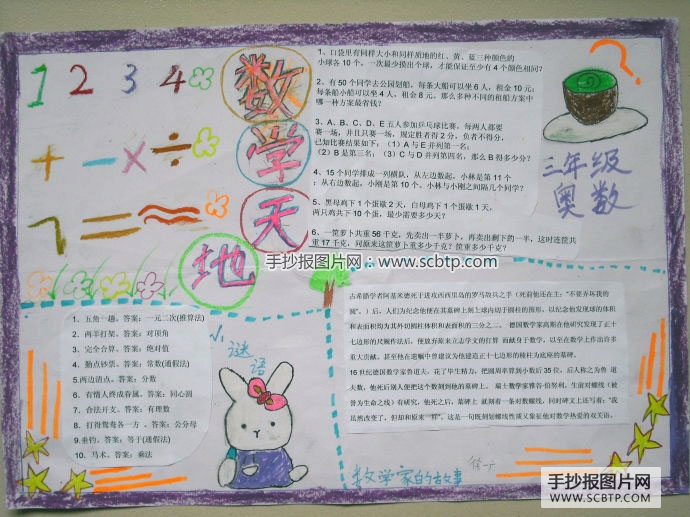 1 2 3 4
+ - × ÷
7 = ≈
数学天地
1、口袋里有同样大小和同样质地的红、黄、蓝三种颜色的
小球各10个，一次最少摸出个球，才能保证至少有4个颜色相同？
2、有50个同学去公园划船，每条大船可以坐6人，租金10元；
每条小船可以坐4人，租金8元，那么多种不同的租船方案中
哪一种方案最省钱？
3、A、B、C、D、E五人参加乒乓球比赛，每两人都要
赛一场，并且只赛一场，规定胜者得2分，负者不得分，
已知比赛结果如下：（1）A与E并列第一名；
（2）B是第三名；（3）C与D并列第四名，那么B得多少分？
4、15个同学排成一列横队，从左边数起，小林是第11个
；从右边数起，小刚是第10个。小林与小刚之间隔几个同学？
5、黑母鸡下1个蛋歇2天，白母鸡下1个蛋歇1天，
两只鸡共下10个蛋，最少需要多少天？
6、一筐萝卜共重56千克，先卖出一半萝卜，再卖出剩下的一半，这时连筐共
重17千克，问原来这筐萝卜重多少千克？筐重多少千克？
?
三年级
奥数
手抄报图片网--www.scbtp.com
1、五角一趟，答案：一元二次(推算法)
2、两羊打架，答案：对顶角
3、完全合算，答案：绝对值
4、勤点钞票，答案：常数(通假法)
5.两边清点，答案：分数
6、有情人终成眷属，答案：同心圆
7、合法开支，答案：有理数
8、打得鸳鸯各一方，答案：公分母
9.垂钓，答案：等于(通假法)
10、马术，答案：乘法
小谜语
古希腊学者阿基米德死于进攻西西里岛的罗马敌兵之手（死前他还在主：“不要弄坏我的
圆”。）后，人们为纪念他便在其墓碑上刻上球内切于圆柱的图形，以纪念他发现球的体积
和表面积均为其外切圆柱体积和表面积的三分之二。 德国数学家高斯在他研究发现了正十
七边形的尺规作法后，便放弃原来立志学文的打算 而献身于数学，以至在数学上作出许多
重大贡献。甚至他在遗嘱中曾建议为他建造正十七边形的棱柱为底座的墓碑。
16世纪德国数学家鲁道夫，花了毕生精力，把圆周率算到小数后35位，后人称之为鲁 道
夫数，他死后别人便把这个数刻到他的墓碑上。 瑞士数学家雅谷·伯努利，生前对螺线（被
誉为生命之线）有研究，他死之后，墓碑上 就刻着一条对数螺线，同时碑文上还写着：“我
虽然改变了，但却和原来一样”。这是一句既刻划螺线性质又象征他对数学热爱的双关语。
数学家的故事
手抄报图片网
WWW.SCBTP.COM